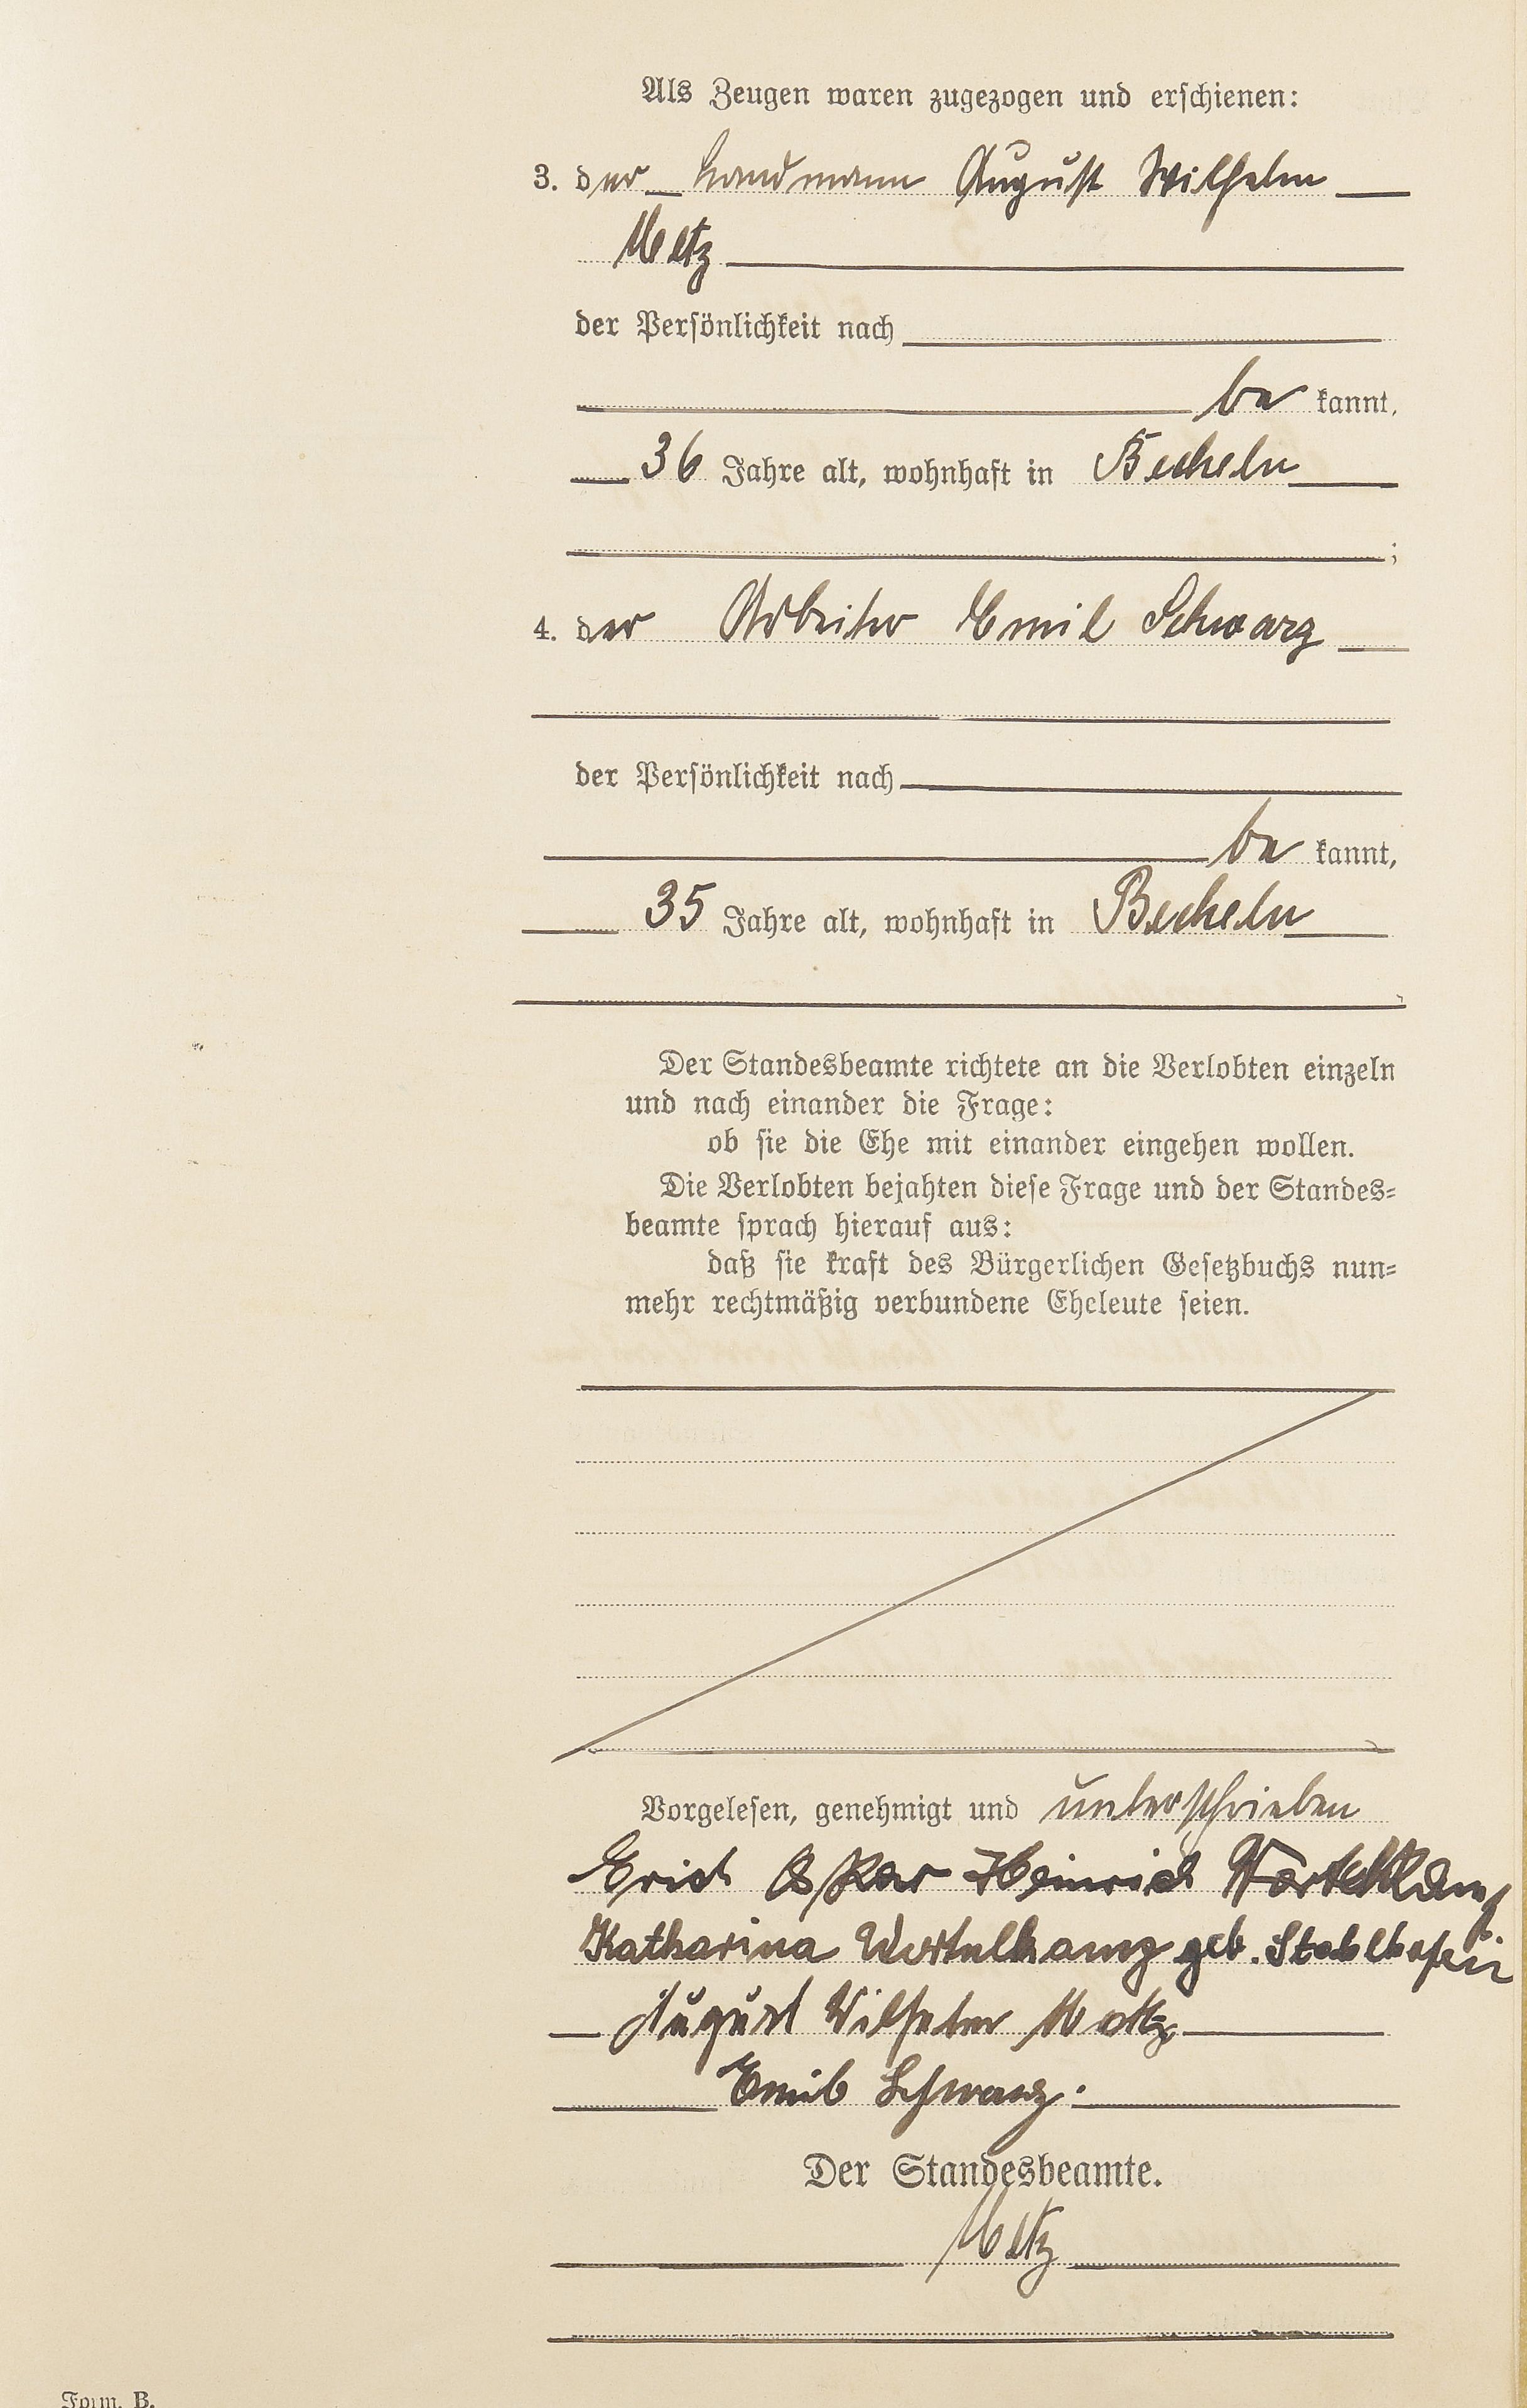 Als Zeugen waren zugezogen und erschienen:
3. der Landmann August Wilhelm
Metz
der Persönlichkeit nach
be kannt,
36 Jahre alt, wohnhaft in Becheln
;
4. der Arbeiter Emil Schwarz
der Persönlichkeit nach
be kannt,
35 Jahre alt, wohnhaft in Becheln
Der Standesbeamte richtete an die Verlobten einzeln
und nach einander die Frage:
ob sie die Ehe mit einander eingehen wollen.
Die Verlobten bejahten diese Frage und der Standes-
beamte sprach hierauf aus:
daß sie kraft des Bürgerlichen Gesetzbuchs nun-
mehr rechtmäßig verbundene Eheleute seien.
Vorgelesen, genehmigt und unterschrieben
Erich Oskar Heinrich
Katharina geb. Stahlhofen
August Wilhelm Metz
Emil Schwarz.
Der Standesbeamte.
Metz
Form. B.